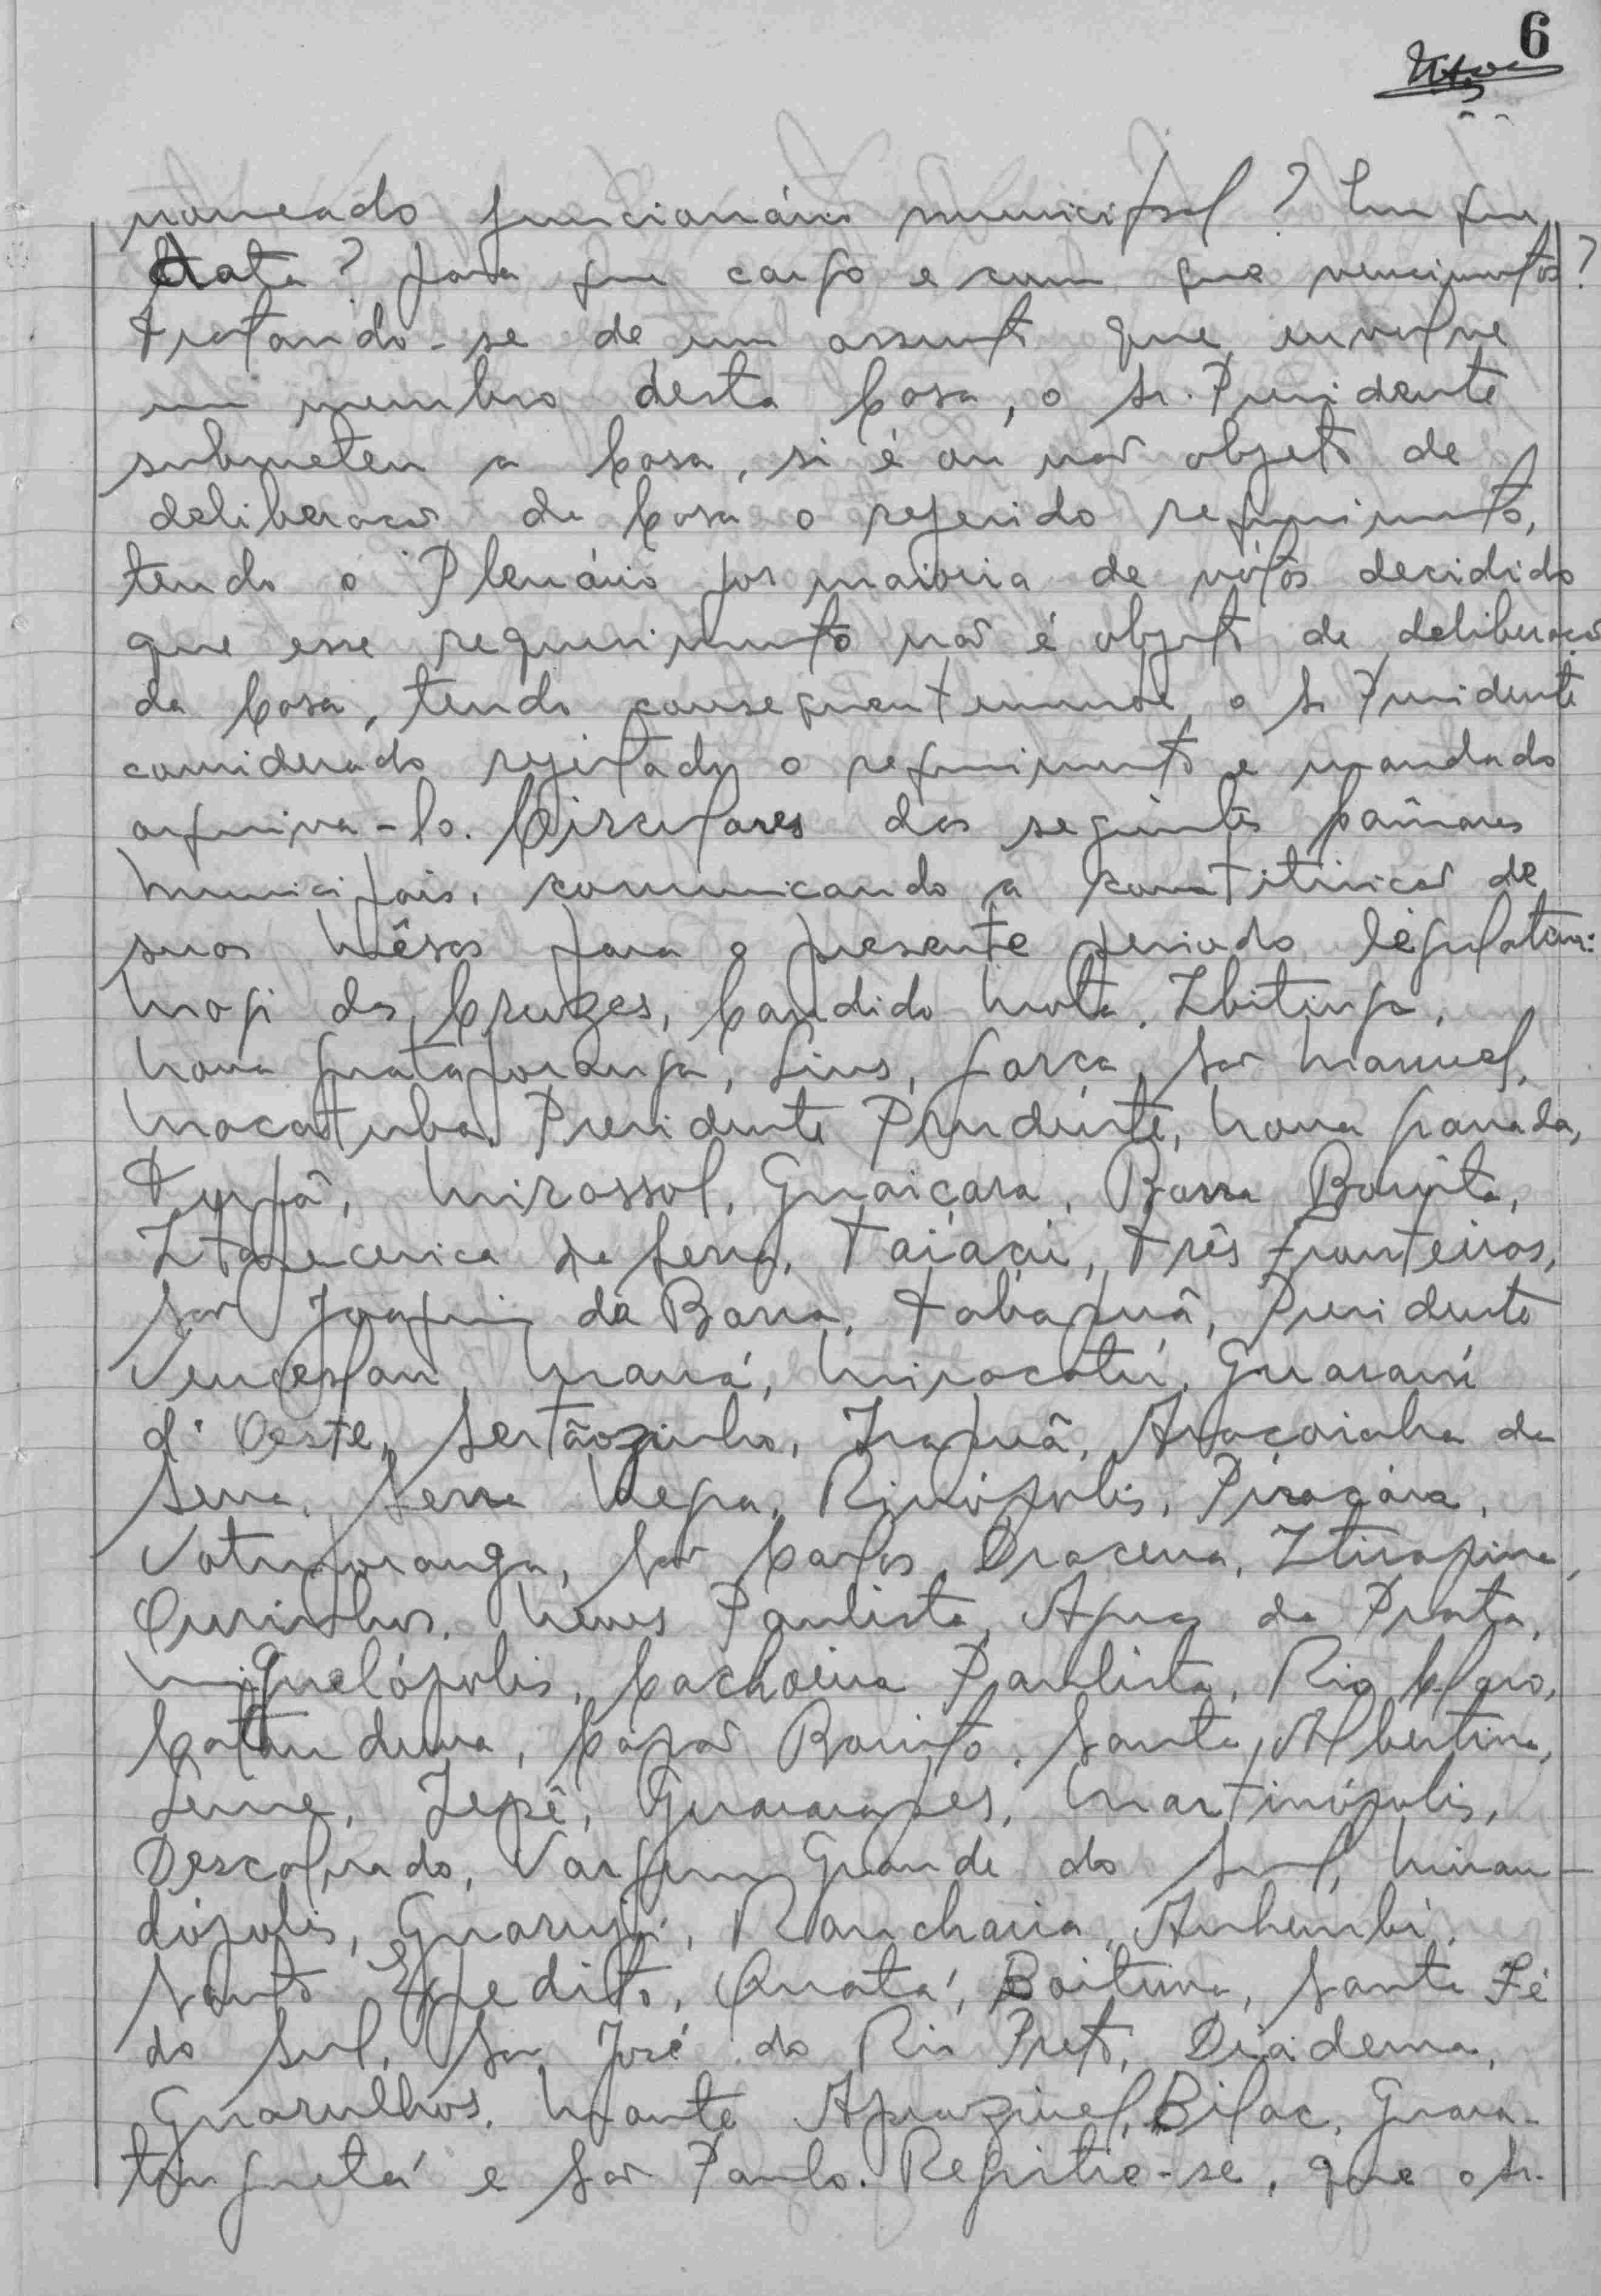 6
nomeado funcionário municipal? Em que
data? para que cargo e com que vencimentos?
Tratando-se de um assunto que envolve
um membro desta Casa, o Sr. Presidente
submeteu a Casa, si é ou não objeto de
deliberação da Casa o referido requerimento,
tendo o Plenário por maioria de vótos decidido
que esse requerimento não é objeto de deliberação
da Casa, tendo consequentemente o Sr Presidente
considerado rejeitado o requerimento e mandado
arquiva-lo. Circulares das seguintes Câmaras
Municipais, comunicando a constituição de
suas Mêsas para o presente periodo legislativo:
Mogi das Cruzes, Candido Mota, Ibitinga,
Nova Guataporanga, Lins, Garça, São Manuel,
Macatuba, Presidente Prudente, Nova Granada,
Tupã, Mirassol, Guaiçara, Barra Bonita,
Itapecerica da Serra, Taiaçu, Três Fronteiras,
São Joaquim da Barra, Tabapuã, Presidente
Venceslau, Mauá, Miracatú, Guarani
d'Oeste, Sertãozinho, Irapuã, Araçoiaba da
Serra, Serra Negra, Rinópolis, Piracáia,
Votuporanga, São Carlos, Dracena, Itirapina,
Ourinhos, Neves Paulista, Aguas da Prata,
Miguelópolis, Cachoeira Paulista, Rio Claro,
Catanduva, Capão Bonito, Santa Albertina,
Leme, Iepê, Guararapes, Martinópolis,
Descalvado, Vargem Grande do Sul, Miran-
dópolis, Guarujá, Rancharia, Anhembi,
Santo Expedito, Quatá, Boituva, Santa Fé
do Sul, São José do Rio Preto, Diadema,
Guarulhos, Monte Aprazivel, Bilac, Guara-
tinguetá e São Paulo. Registre-se, que o Sr.